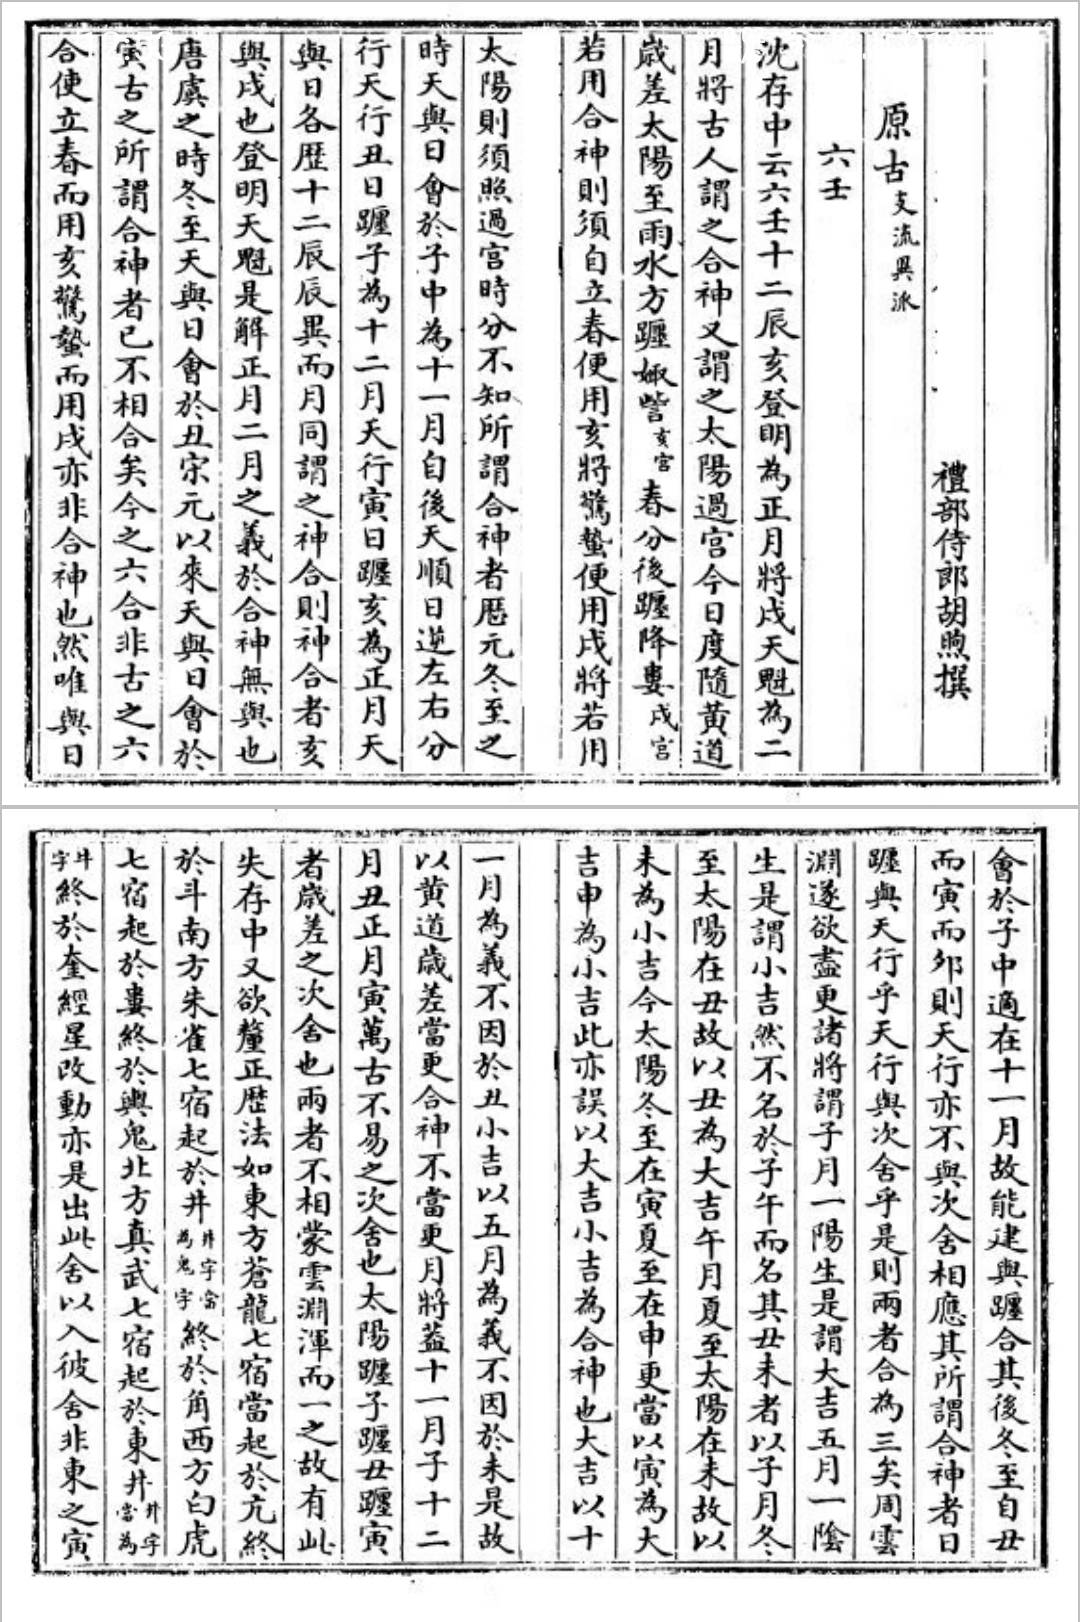 禮部侍郎胡煦撰
原古支流異派
六壬
沈存中云六壬十二辰亥登明為正月將戌天魁為二
月將古人謂之合神又謂之太陽過宮今日度隨黃道
歲差太陽至雨水方躔娵訾亥宮春分後躔降婁戌宮
若用合神則須自立春便用亥將驚蟄便用戌將若用
太陽則須照過宮時分不知所謂合神者歴元冬至之
時天與日會於子中為十一月自後天順日逆左右分
行天行丑日躔子為十二月天行寅日躔亥為正月天
與日各歴十二辰辰異而月同謂之神合則神合者亥
與戌也登明天魁是解正月二月之義於合神無與也
唐虞之時冬至天與日會於丑宋元以來天與日會於
寅古之所謂合神者已不相合矣今之六合非古之六
合便立春而用亥驚蟄而用戌亦非合神也然唯與日
會於子中適在十一月故能建與躔合其後冬至自丑
而寅而夘則天行亦不與次舍相應其所謂合神者日
躔與天行乎天行與次舍乎是則兩者合為三矣周雲
淵遂欲盡更諸將謂子月一陽生是謂大吉五月一陰
生是謂小吉然不名於子午而名其丑未者以子月冬
至太陽在丑故以丑為大吉午月夏至太陽在未故以
未為小吉今太陽冬至在寅夏至在申更當以寅為大
吉申為小吉此亦誤以大吉小吉為合神也大吉以十
一月為義不因於丑小吉以五月為義不因於未是故
以黃道歲差當更合神不當更月將蓋十一月子十二
月丑正月寅萬古不易之次舍也太陽躔子躔丑躔寅
者歲差之次舍也兩者不相蒙雲淵渾而一之故有此
失存中又欲釐正歴法如東方蒼龍七宿當起於亢終
於斗南方朱雀七宿起於井井字當為鬼字終於角西方白虎
七宿起於婁終於輿鬼北方真武七宿起於東井井字當為
井字終於奎經星改動亦是出此舍以入彼舍非東之寅